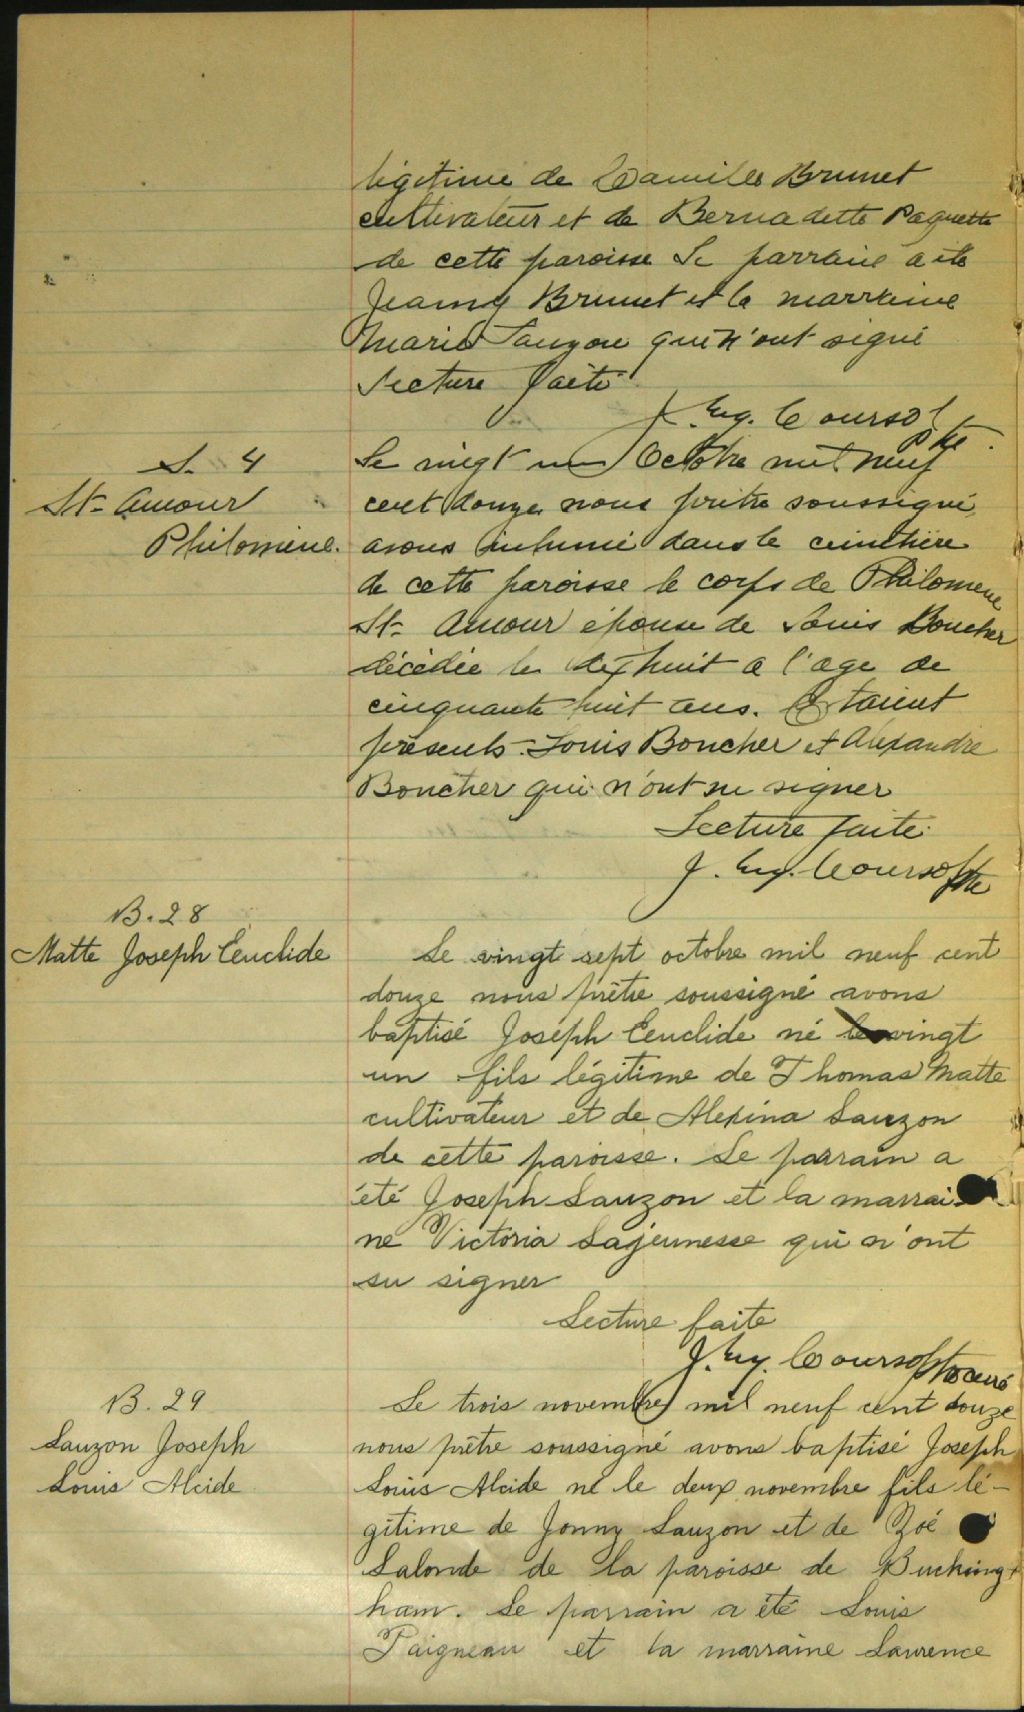 légitime de Camille Brunet
cultivateur et de Bernadette Paquette
de cette paroisse Le parrain a été
Jeamy Brunet et la marraine
Marie Lauzon qui n'ont signé
Lecture faite
J. Eug. Coursol ptre.
S. 4
St-Amour
Philomène.
Le vingt un Octobre mil neuf
cent douze nous prêtre soussigné
avons inhumé dans le cimetière
de cette paroisse le corps de Philomène
St-Amour épouse de Louis Boucher
décédée le dix huit a l'age de
cinquante huit ans. Etaient
présents Louis Boucher et Alexandre
Boucher qui n'ont su signer
Lecture faite
J. Eug. Coursol ptre
B. 28
Matte Joseph Eeuclide
Le vingt sept octobre mil neuf cent
douze nous prêtre soussigné avons
baptisé Joseph Eeuclide né le vingt
un fils légitime de Thomas Matte
cultivateur et de Alexina Lauzon
de cette paroisse. Le parrain a
été Joseph Lauzon et la marrai-
ne Victoria Lajeunesse qui n'ont
su signer
Lecture faite
J. Eug. Coursol ptre curé
B. 29
Lauzon Joseph
Louis Alcide
Le trois novembre mil neuf cent douze
nous prêtre soussigné avons baptisé Joseph
Louis Alcide né le deux novembre fils lé-
gitime de Jonny Lauzon et de Zoé
Lalonde de la paroisse de Bucking-
ham. Le parrain a été Louis
Paigneau et la marraine Laurence